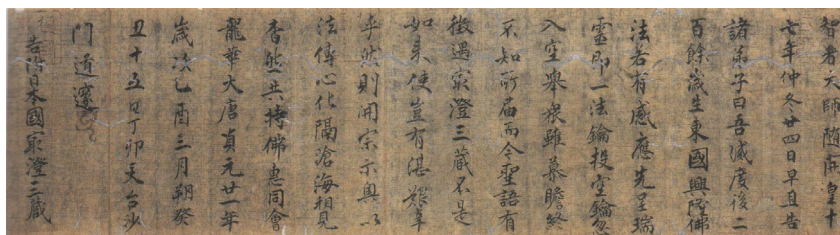 智者大師随開皇十
七年仲冬廿四日早旦告
諸弟子曰吾滅度後二
百餘歳生東國興隆佛
法若有感應先呈瑞
靈即一法鑰投空鑰忽
入空舉衆雖慕瞻終
不知所届而今聖語有
徴遇冣澄三蔵不是
如来使豈有湛艱辛
乎然則開宗示奥以
法傳心化隔滄海相見
杳然共持佛惠同會
龍華大唐貞元廿一年
歳次乙酉三月朔癸
丑十五日丁卯天台沙
門道邃
告於日本國冣澄三蔵